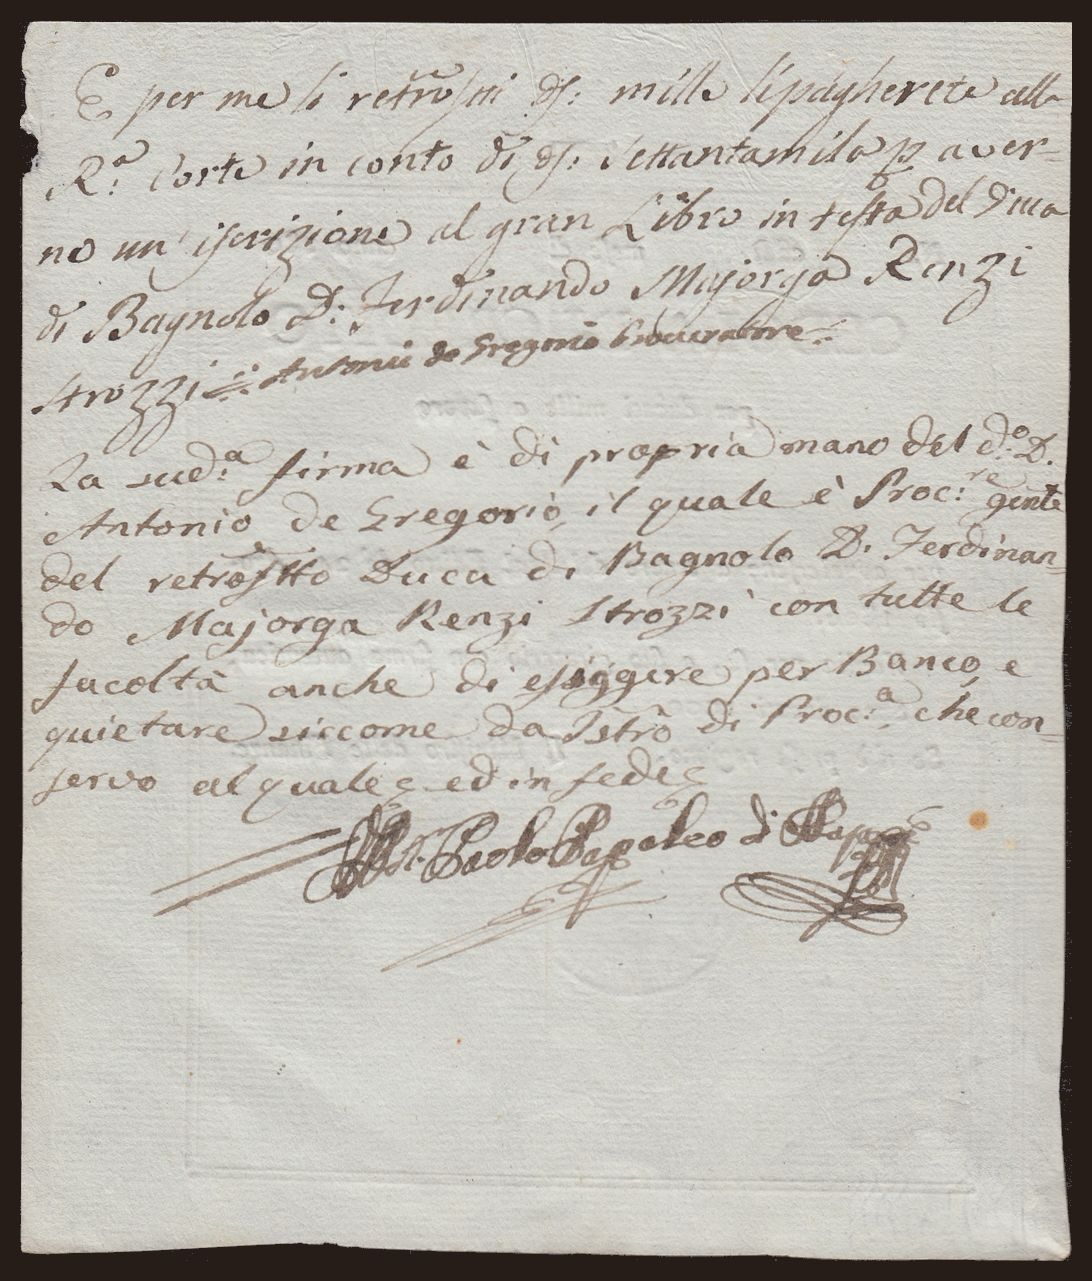 E per me li retroſtti dſ: mille li pagherete alla
R.ª Corte in conto di dſ: Settantamila p aver-
ne un iscrizione al gran Libro in testa del Duca
di Bagnolo D: Ferdinando Majorga Renzi
Strozzi =: Antonio de Gregorio Procuratore
La sud.ª firma è di propria mano del d.º D.
Antonio de Gregorio, il quale è Proc.re gente
del retroſtto Duca di Bagnolo D. Ferdinan-
do Majorga Renzi Strozzi con tutte le
facoltà anche di esiggere per Banco, e
quietare siccome da Istrō di Proc.ª che con-
servo al quale ed in fede
Nr. Paolo Papaleo di Napoli